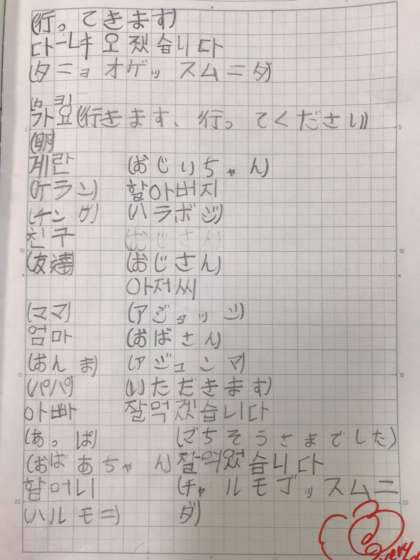 (行ってきます)
다녀오겠습니다
(タニョオゲッスムニダ)
カヨ
가요(行きます、行ってください)
(卵)
계란 (おじいちゃん)
(ケラン) 할아버지
(チング) (ハラボジ)
친구 (おじさん)
(友達) (おじさん)
아저씨
(ママ) (アジョッシ)
엄마 (おばさん)
(おんま) (アジュンマ)
(パパ) (いただきます)
아빠 잘먹겠습니다
(あっぱ) (ごちそうさまでした)
(おばあちゃん) 잘먹었습니다
할머니 (チャルモゴッスムニ
(ハルモニ) ダ)